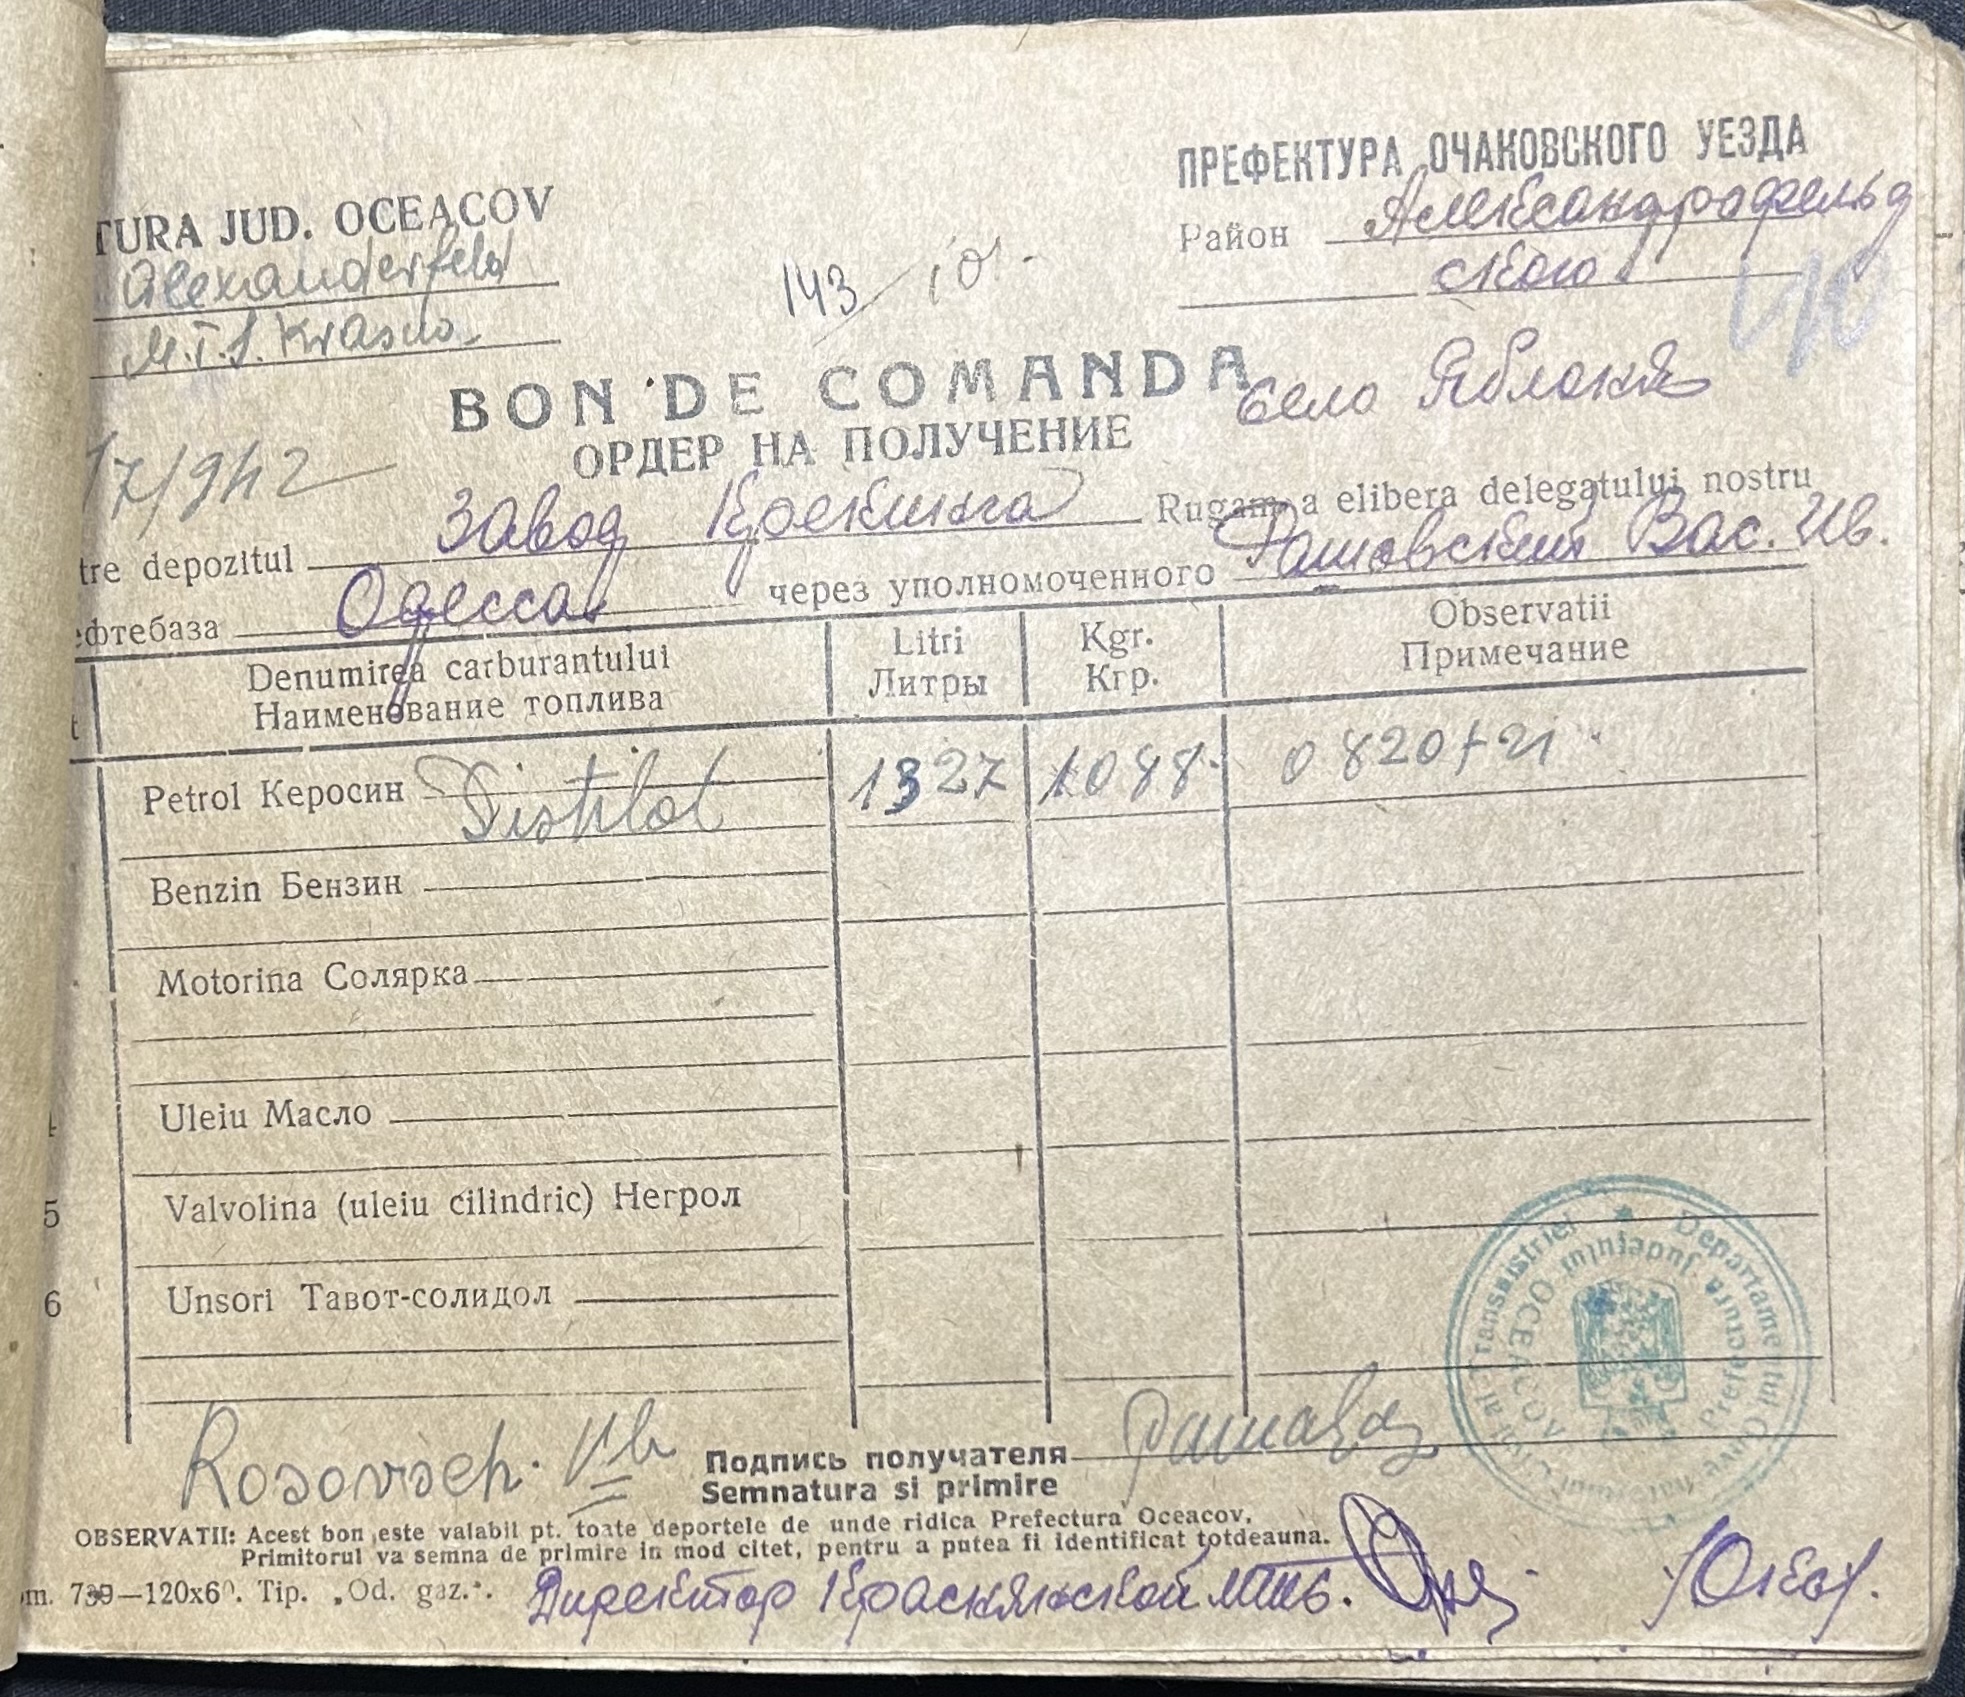 TURA JUD. OCEACOV
Alexanderfeld
M.T.S. Krasno
143/
ПРЕФЕКТУРА ОЧАКОВСКОГО УЕЗДА
Район Александрафельд
ского
BON DE COMANDA
ОРДЕР НА ПОЛУЧЕНИЕ
Село Яблокя
17/942
tre depozitul Завод Крекинга Rugam a elibera delegatului nostru
ефтебаза Одесса через уполномоченного Рашовский Вас. Ив.
Denumirea carburantului Litri Kgr. Observatii
Наименование топлива Литры Кгр. Примечание
Petrol Керосин Distilat 1327 1088 0820+21
Benzin Бензин
Motorina Солярка
Uleiu Масло
5 Valvolina (uleiu cilindric) Негрол
6 Unsori Тавот-солидол
Departamentul Guvernamantul Civil al Transnistriei
Prefectura Judetului OCEACOV
Подпись получателя
Semnatura si primire
OBSERVATII: Acest bon este valabil pt. toate deportele de unde ridica Prefectura Oceacov.
Primitorul va semna de primire in mod citet, pentru a putea fi identificat totdeauna.
om. 739—120x60. Tip. „Od. gaz.“.
Директор Краснянской мтс.